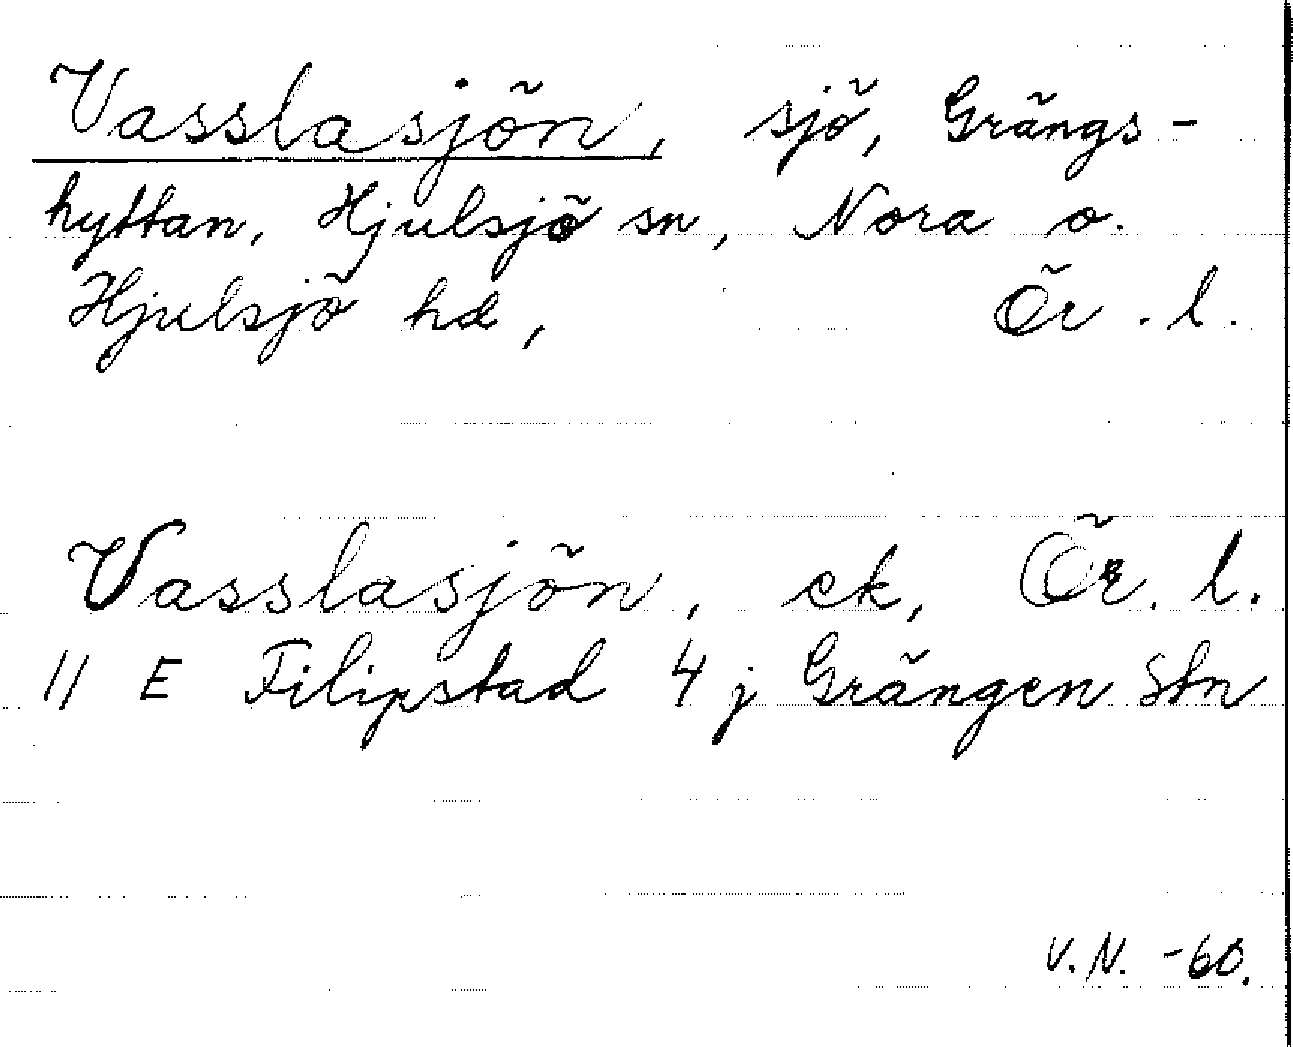 Vasslasjön, sjö, Grängs-
hyttan, Hjulsjö sn, Nora o.
Hjulsjö hd, Ör. l.
Vasslasjön, ek, Ör. l.
11 E Filipstad 4 j Grängen Stn
V.N. -60.